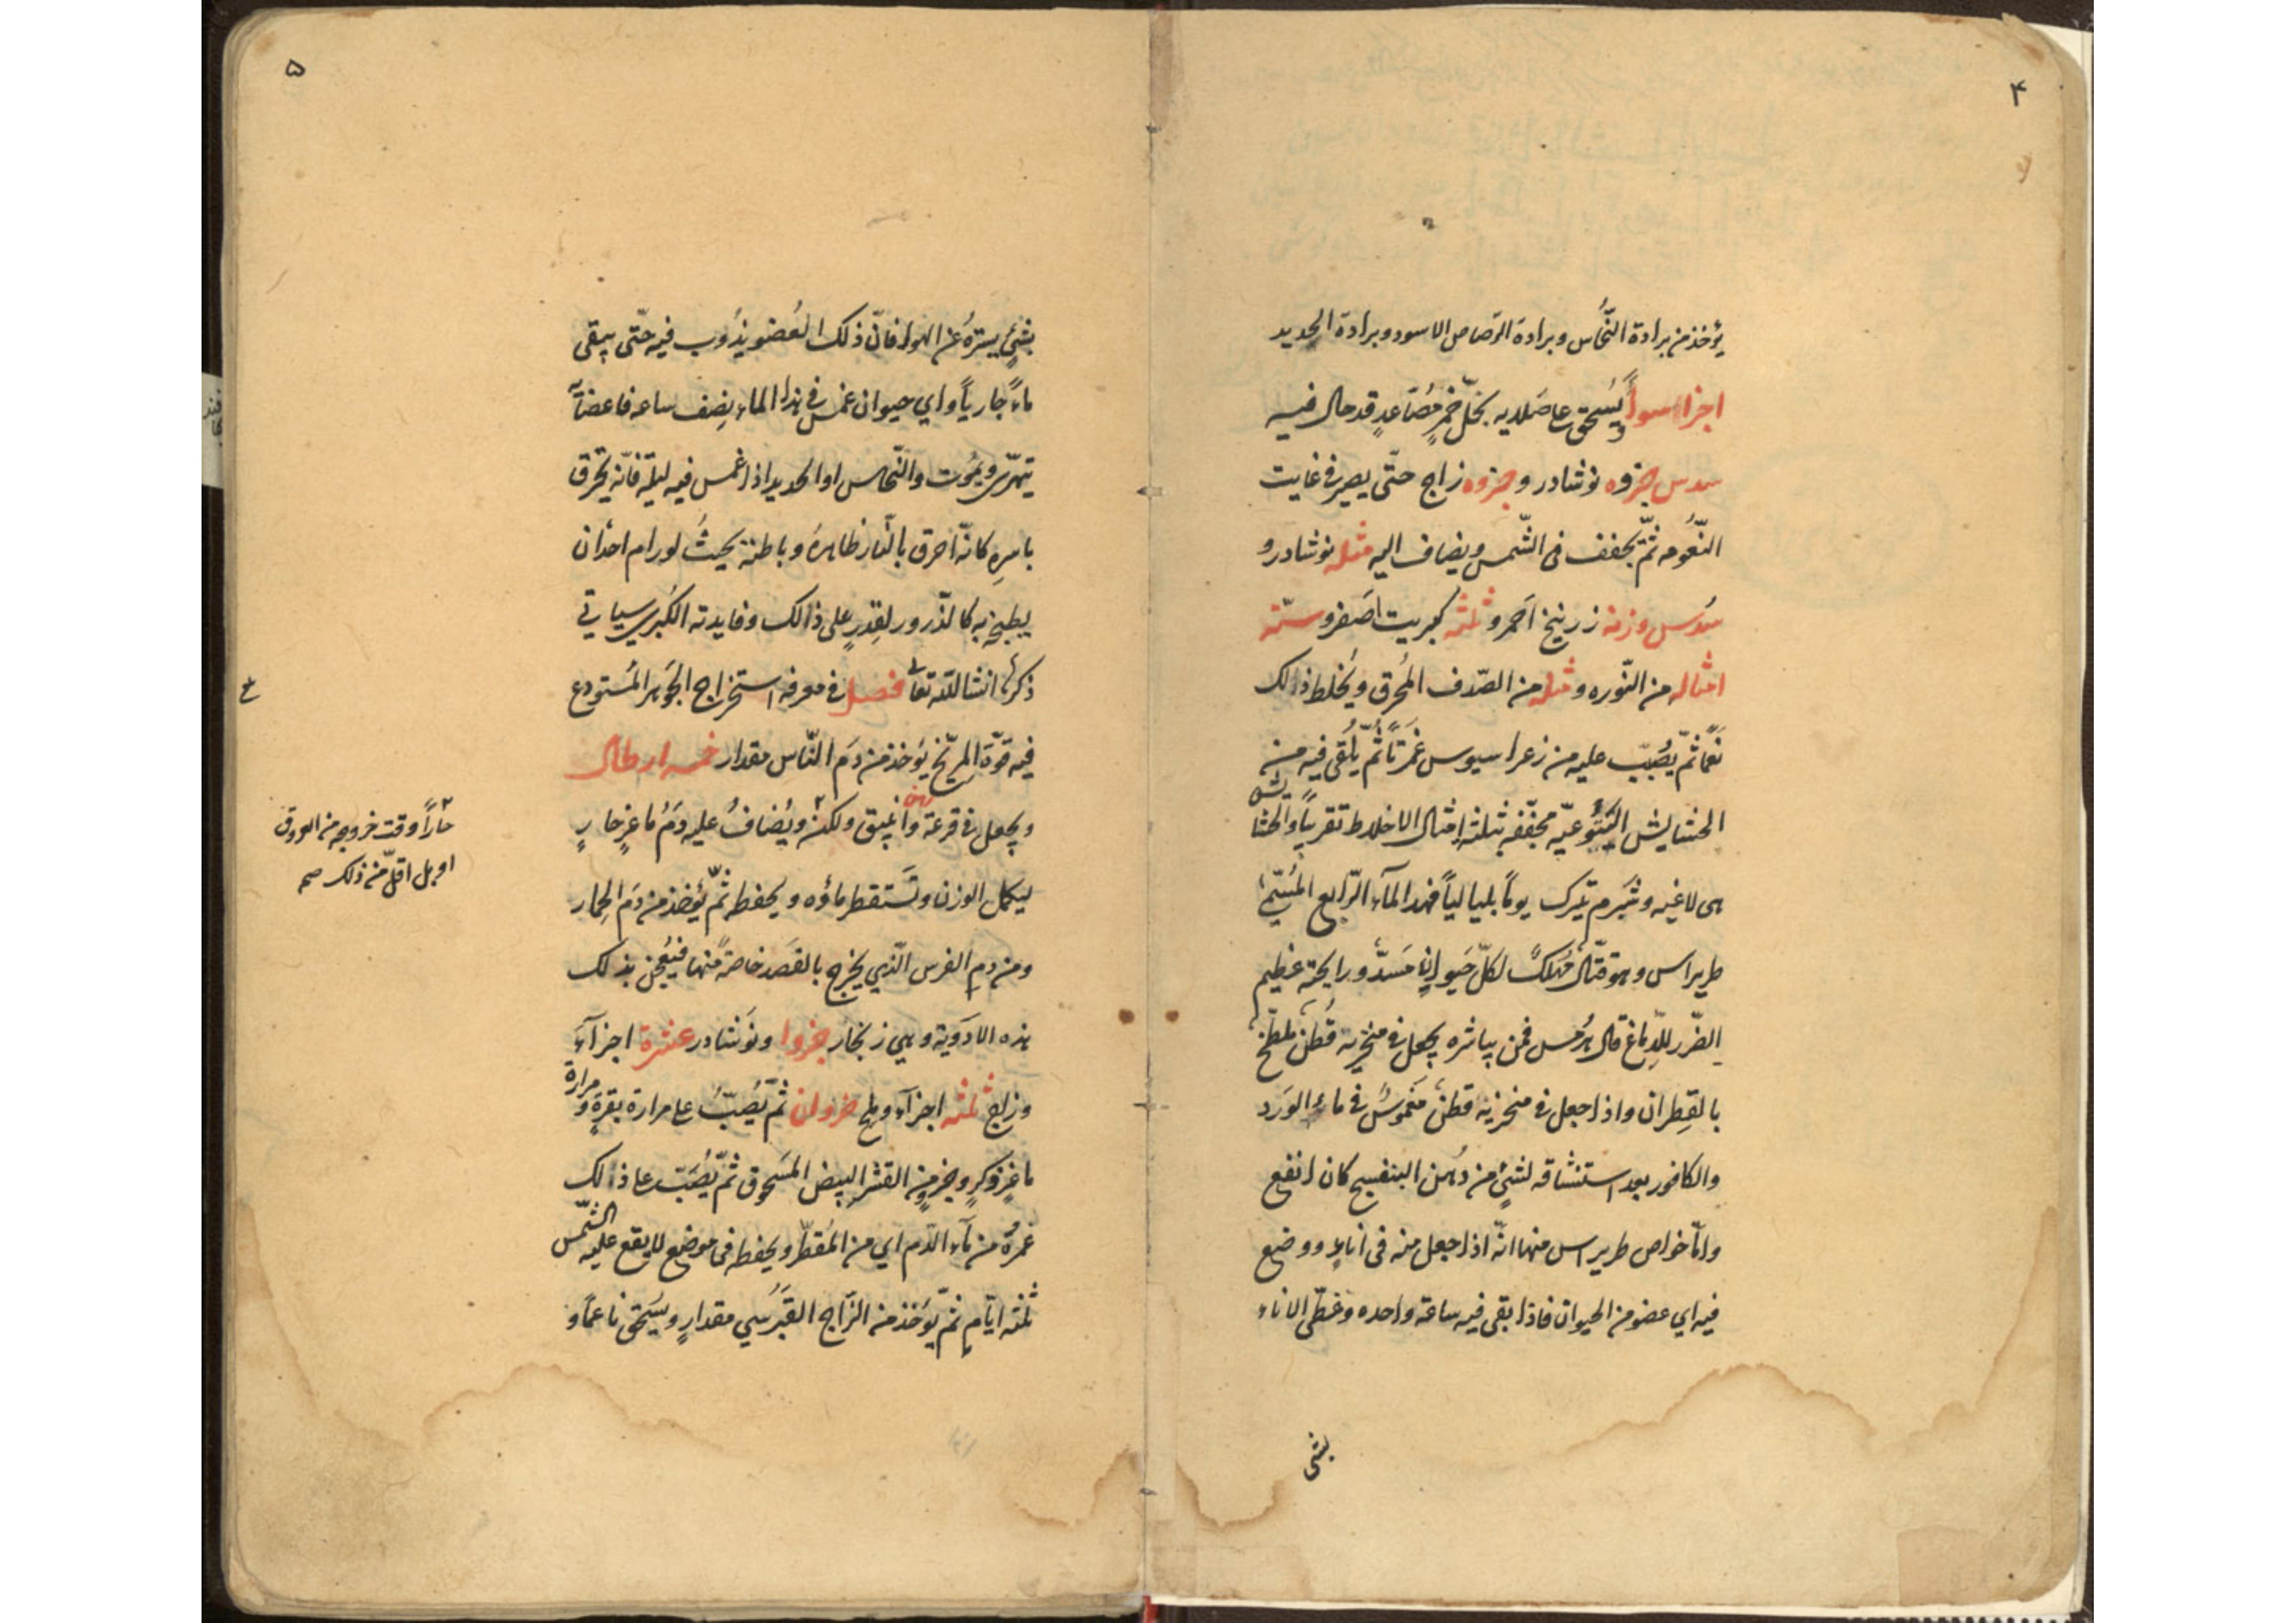 ۴
يؤخذ من برادة النّحاس وبرادة الرّصاص الاسود وبرادة الحديد
اجزا سواً يُسحق على صلاية بخلّ خمرٍ مُصَاعدٍ قد حال فيه
سدس جزوه نوشادر وجزوه زاج حتّى يصير فى غايت
النّعُومه ثمّ يجفف فى الشّمس ويضاف اليه مثله نوشادر و
سُدس وزنه زرنيخ احمر وثلثه كبريت اصَفر وستّة
امثاله من النّوره ومثله من الصّدف المُحرق ويُخلط ذالك
نعمّاً ثمّ يُصبّ عليه من زعراسيوس غمرتاً ثُمّ يُلقى فيه من
الحشايش اليَتُوعيّه مجفّفه ثلثة امثال الاخلاط تقريباً والحشايش
هى لاغيه وشبرم يترك يوماً بلياليا فهذا المآء الرّابع المُسَمّى
طريراس وهو قتّال مُهلكٌ لكلّ حَيوانٍ مَسَدٌ ورايحته عظيم
الضّرر للدّماغ قال هُرمس فمن يباشره يجعل فى منخريه قُطنٌ مُلطّخٌ
بالقِطران واذا جعل فى منخريه قطنٌ مَغمُوسٌ فى ماء الوَرد
والكافور بعد استنشاقه لشىءٍ من دُهن البنفسج كان انفع
وامّا خواص طريراس منها انّه اذا جعل منه فى اناءٍ ووضع
فيه اي عضو من الحيوان فاذا بقى فيه ساعة واحده وغطّى الاناء
بشى
۵
بشىءٍ يسترهُ عن الهوا فانّ ذلك العُضو يذُوب فيه حتّى يبقى
ماءً جارياً واي حيوان غمس فى هذا الماء نِصف ساعه فاعضآئه
تتهرّى ويمُوت والنّحاس او الحديد اذا غمس فيه ليلة فانّه يحرق
باسرِه كانّه احرق بالنّار ظاهرهُ وباطنه بحيثُ لو رام احدٌ ان
يطبخ به كالذّرور لقدِر على ذالك وفايدته الكُبرى سياتى
ذكرها انشاالله تعالى فصل فى معرفة استخراج الجَوهر المُستودع
فيه قوّة المِرّيخ يُؤخذ من دَم النّاس مقدار خمسه ارطال
ويجعل فى قرعة وانبيق ولكن ويُضافُ عليه دَمُ ماعزٍ حارٍ
حارّاً وقت خروجه من العروق
او بل اقلّ من ذلك صح
ليكمل الوزن وتَستقطر ماؤه ويحفظ ثمّ يُؤخذ من دَم الحِمار
ومن دم الفرس الّذي يخرج بالفَصد خاصةً منها فيُعجن بذلك
هذه الادَوية وهى زنجار جزوا ونَوشادر عَشرة اجزآءَ
وزاج ثلثه اجزآء وملح جزوان ثمّ يُصَبّ على مرارة بقرةٍ ومرارة
ماعزٍ ذكرٍ وجزءٍ من القشر البيض المسَحوق ثمّ يُصَبّ على ذالك
غمرهُ من مآء الدّم اي من المُقطّر ويحفظ فى موضع لا يقع عليه الشّمس
ثلثه ايّامٍ ثمّ يُؤخذ من الزّاج القبرُسي مقدارٍ ويسُحَق ناعماً و